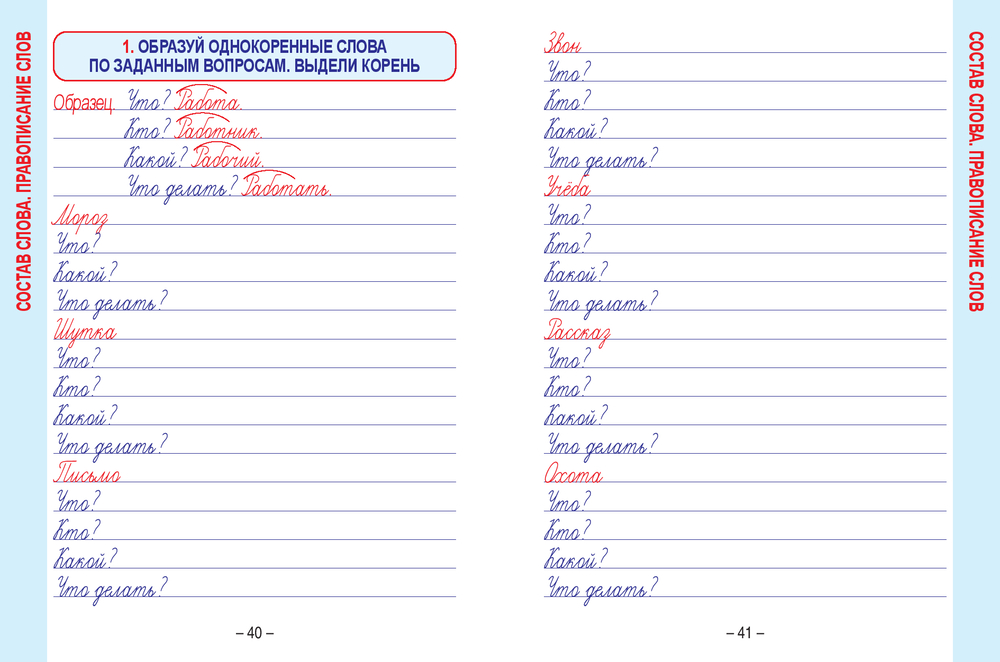 СОСТАВ СЛОВА. ПРАВОПИСАНИЕ СЛОВ
1. ОБРАЗУЙ ОДНОКОРЕННЫЕ СЛОВА
ПО ЗАДАННЫМ ВОПРОСАМ. ВЫДЕЛИ КОРЕНЬ
Образец. Что? Работа.
Кто? Работник.
Какой? Рабочий.
Что делать? Работать.
Мороз
Что?
Какой?
Что делать?
Шутка
Что?
Кто?
Какой?
Что делать?
Письмо
Что?
Кто?
Какой?
Что делать?
– 40 –
Звон
Что?
Кто?
Какой?
Что делать?
Учёба
Что?
Кто?
Какой?
Что делать?
Рассказ
Что?
Кто?
Какой?
Что делать?
Охота
Что?
Кто?
Какой?
Что делать?
– 41 –
СОСТАВ СЛОВА. ПРАВОПИСАНИЕ СЛОВ